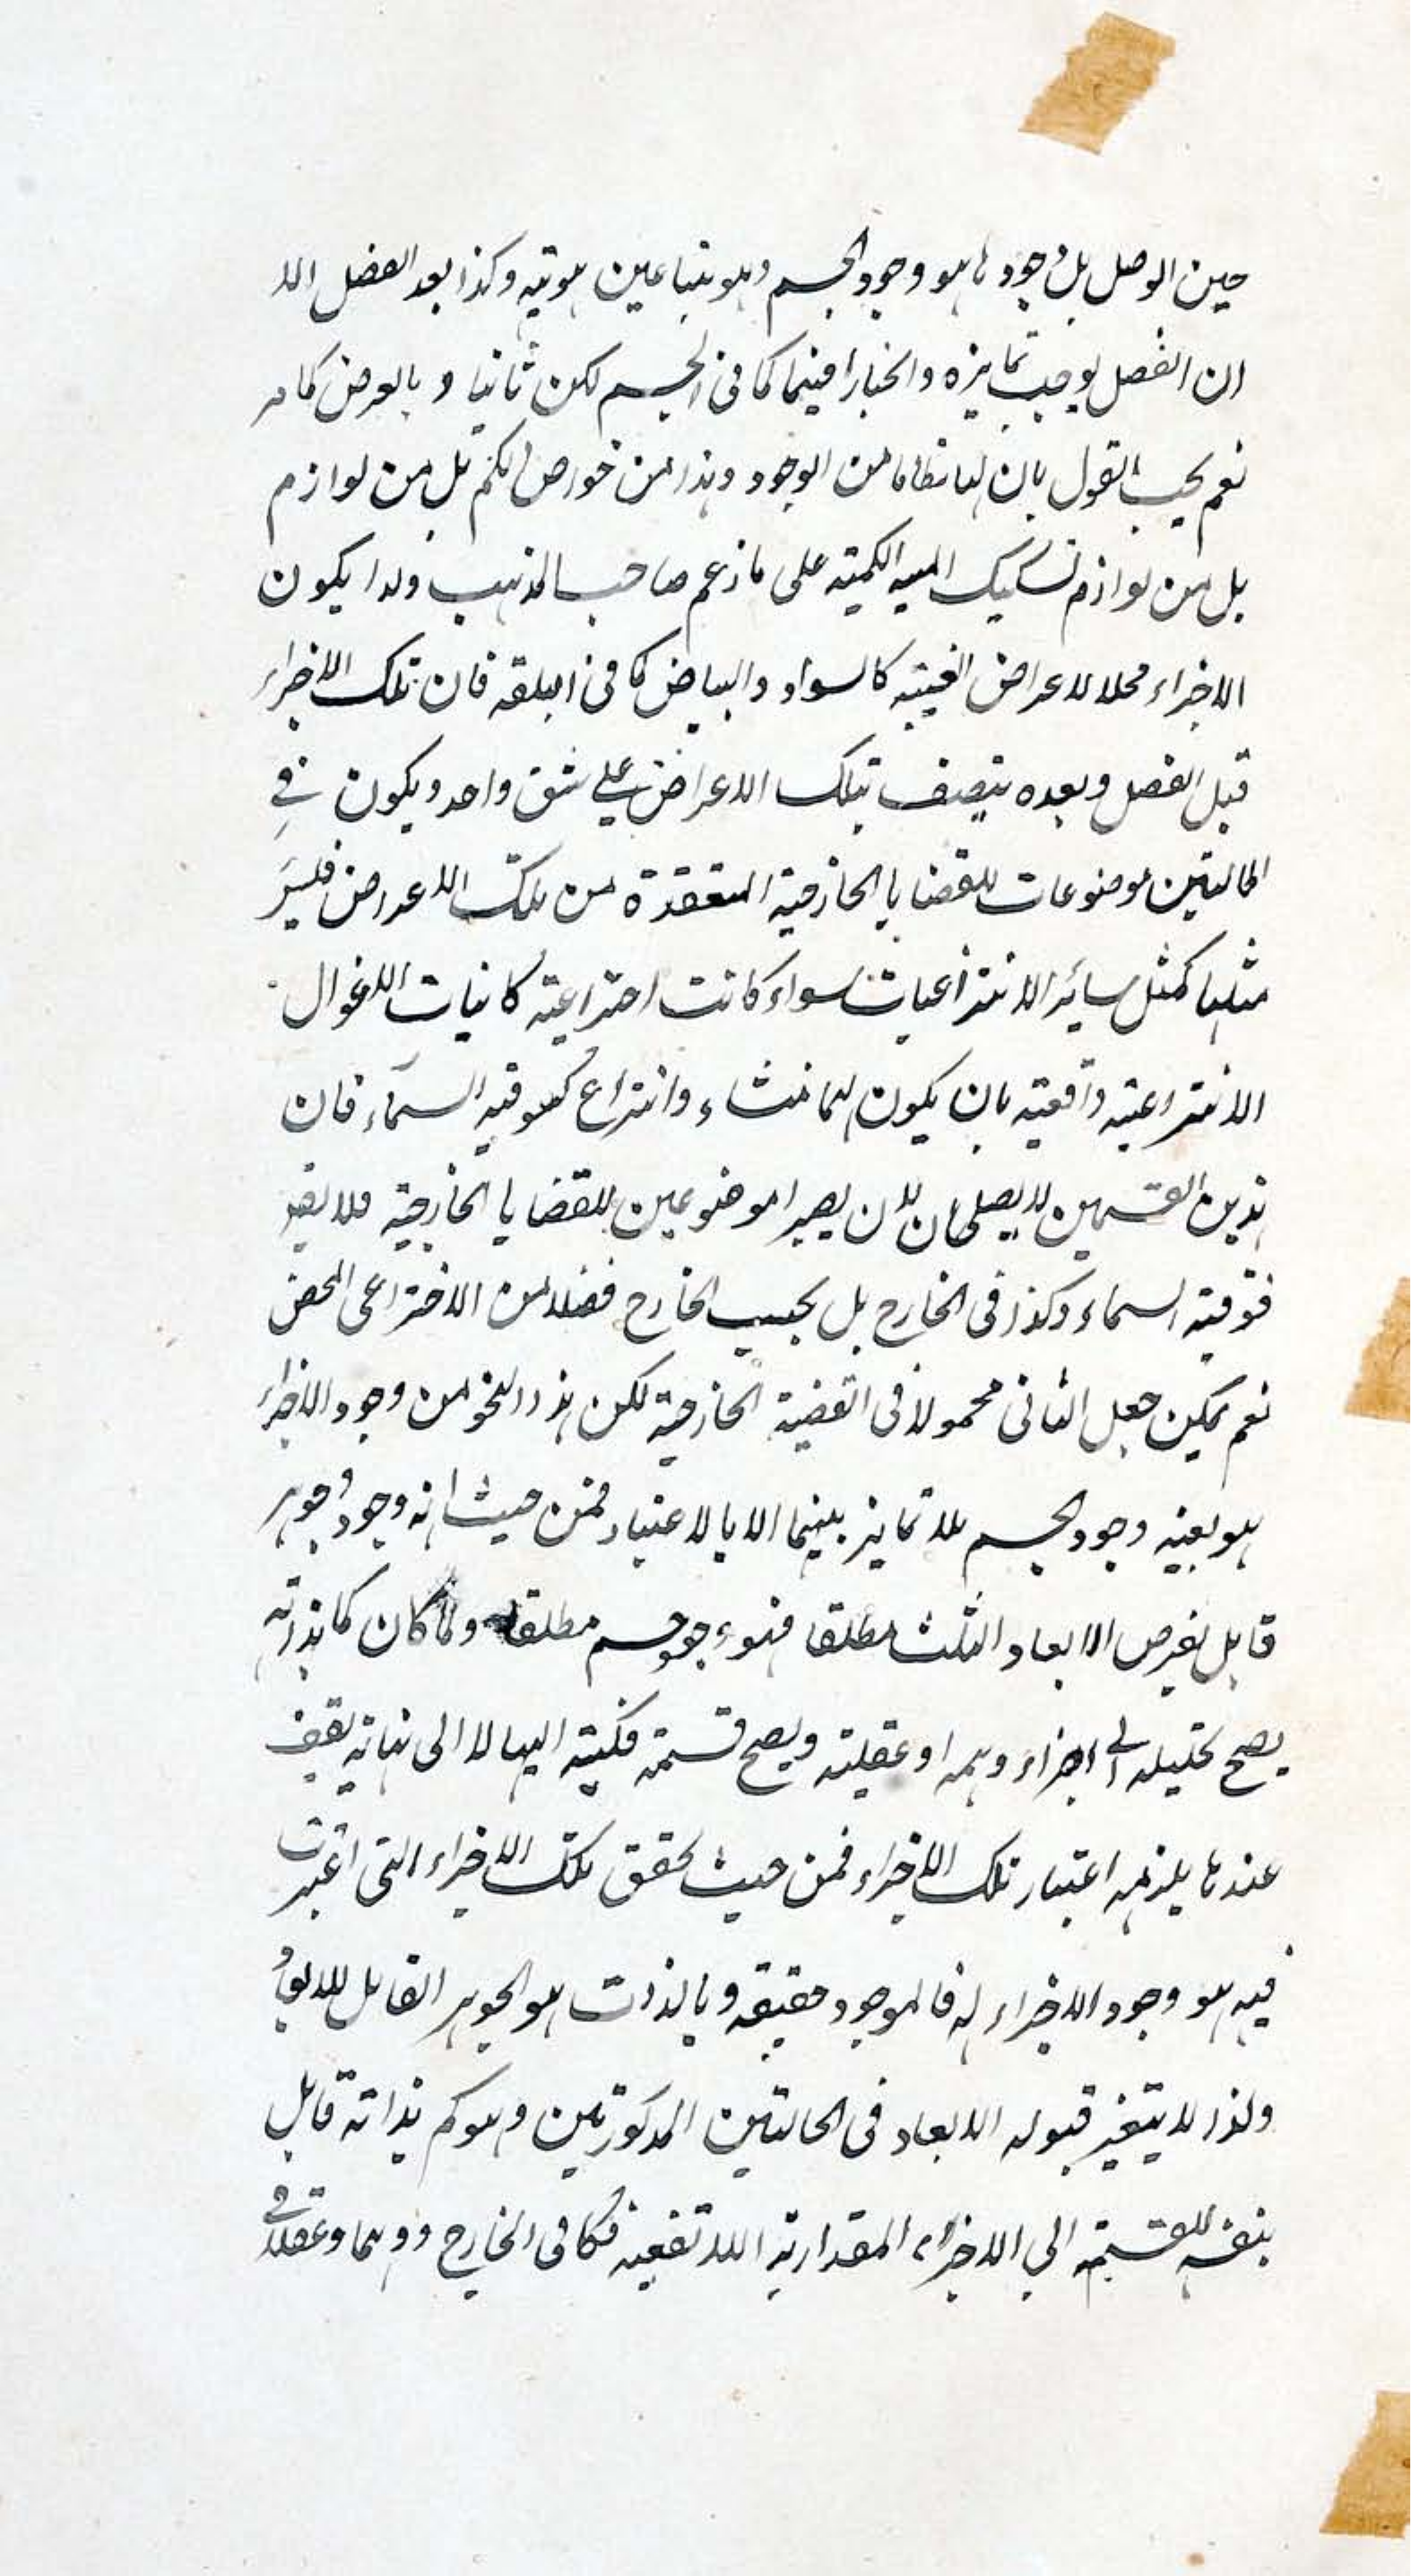 حين الوصل بل وجودها هو وجود الجسم وهويتها عين هويته وكذا بعد الفصل الا
ان الفصل يوجب تمايزه وانحيازا فيما كما في الجسم لكن ثانيا وبالعرض كما مر
نعم يجب القول بان لها نظاما من الوجود وهذا من خواص الكم بل من لوازم
بل من لوازم تشكيك المهية الكمية على ما زعم صاحب المذهب ولذا يكون
الاجزاء محلا للاعراض العينية كالسواد والبياض كما في البلقة فان تلك الاجزاء
قبل الفصل وبعده يتصف بتلك الاعراض على شق واحد ويكون في
الحالتين موضوعات للقضايا الخارجية المنعقدة من تلك الاعراض فليس
مثلها كمثل سائر الانتزاعيات سواء كانت اختراعية كانياب الاغوال
الانتزاعية واقعية بان يكون لها منشاء وانتزاع كفوقية السماء فان
هذين القسمين لا يصلحان لان يصيرا موضوعين للقضايا الخارجية فلا يقر
فوقية السماء وكذا في الخارج بل بحسب الخارج فضلا من الاختراعي المحض
نعم يمكن جعل الثاني محمولا في القضية الخارجية لكن هذا النحو من وجود الاجزاء
هو بعينه وجود الجسم بلا تمايز بينهما الا بالاعتبار فمن حيث انه وجود جوهر
قابل لفرض الابعاد الثلث مطلقا فهو وجود جسم مطلقا ولما كان كما بذاته
يصح تحليله الى اجزاء وهمية او عقلية ويصح قسمته فكية اليها لا الى نهاية يقف
عندها يلزمه اعتبار تلك الاجزاء فمن حيث تحقق تلك الاجزاء التي اعتبرت
فيه هو وجود الاجزاء له فالموجود حقيقة وبالذات هو الجوهر القابل للابعاد
ولذا لا يتغير قبوله الابعاد في الحالتين المذكورتين وهو كم بذاته قابل
بنفسه للقسمة الى الاجزاء المقدارية اللاتقفية فكا في الخارج ووهما وعقلا في